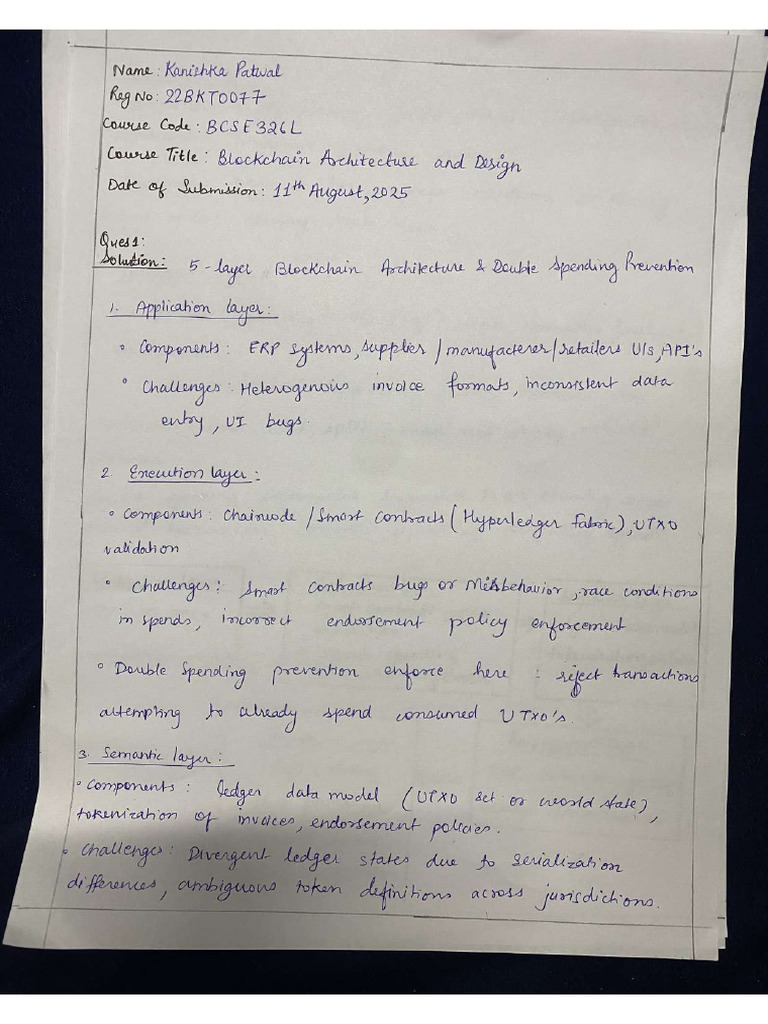 Name: Kanishka Patwal
Reg No: 22BKT0077
Course Code: BCSE326L
Course Title: Blockchain Architecture and Design
Date of Submission: 11th August, 2025
Ques1:
Solution: 5-layer Blockchain Architecture & Double Spending Prevention
1. Application layer:
• Components: ERP systems, supplier/manufacterer/retailers UIs, API's
• Challenges: Heterogenous invoice formats, inconsistent data
entry, UI bugs.
2. Execution layer:
• Components: Chaincode/Smart Contracts (Hyperledger Fabric), UTXO
validation
• Challenges: Smart Contracts bugs or Misbehavior, race conditions
in spends, incorrect endorsement policy enforcement
• Double Spending prevention enforce here: reject transactions
attempting to already spend consumed UTXO's.
3. Semantic layer:
• Components: ledger data model (UTXO set or world state),
tokenization of invoices, endorsement policies.
• Challenges: Divergent ledger states due to serialization
differences, ambiguous token definitions across jurisdictions.